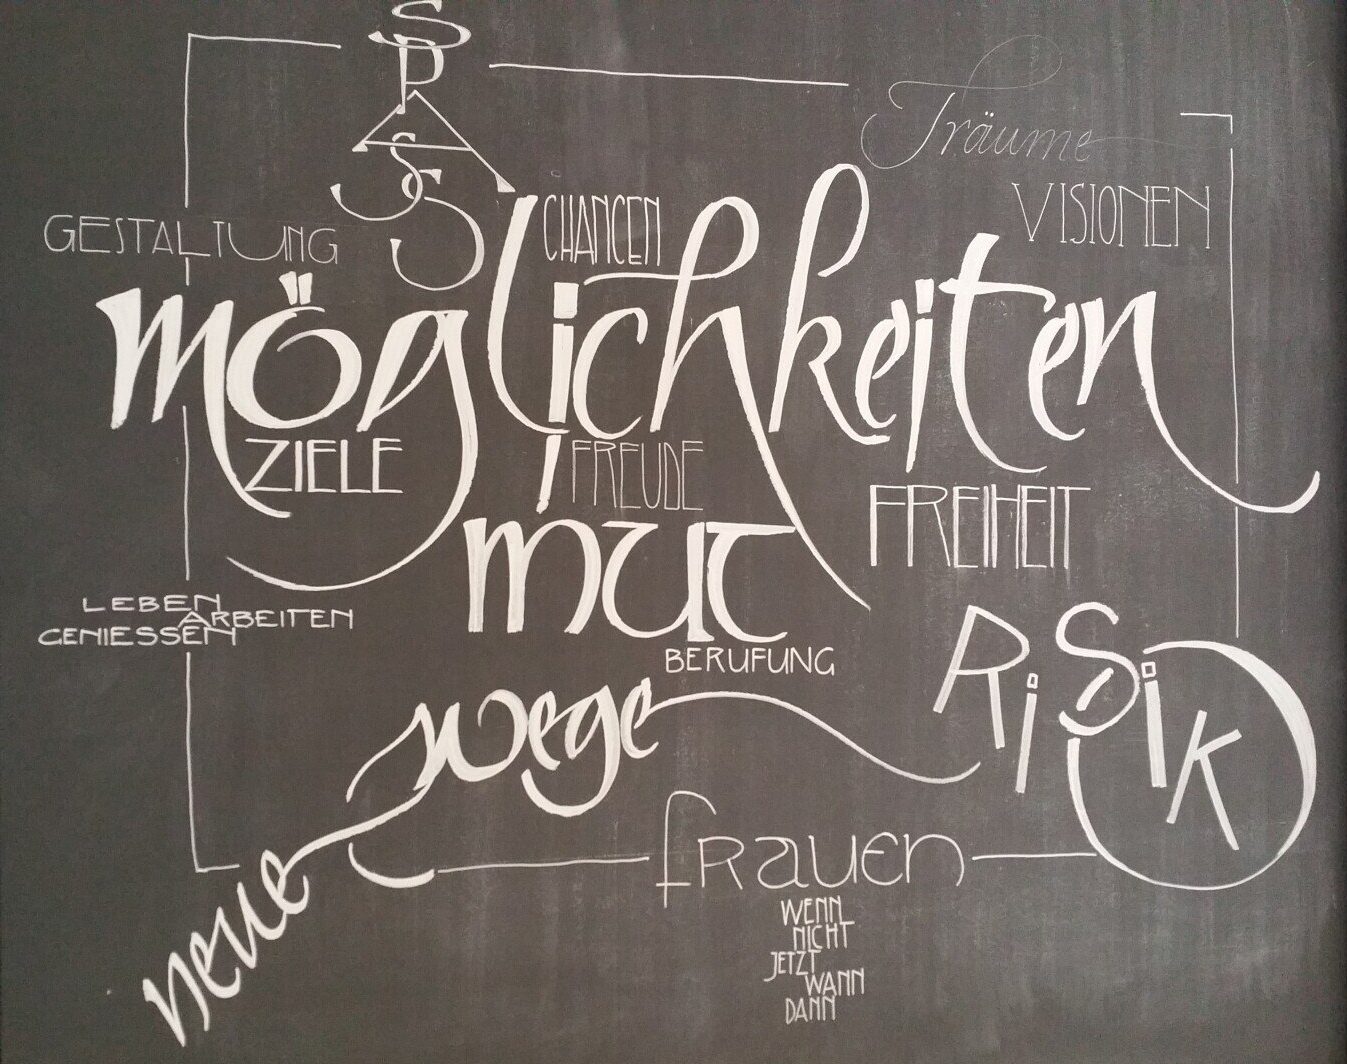 SPASS
Träume
VISIONEN
CHANCEN
GESTALTUNG
möglichkeiten
ZIELE
FREUDE
FREIHEIT
mut
LEBEN
ARBEITEN
GENIESSEN
BERUFUNG
RiSiK
wege
neue
frauen
WENN
NICHT
JETZT
WANN
DANN